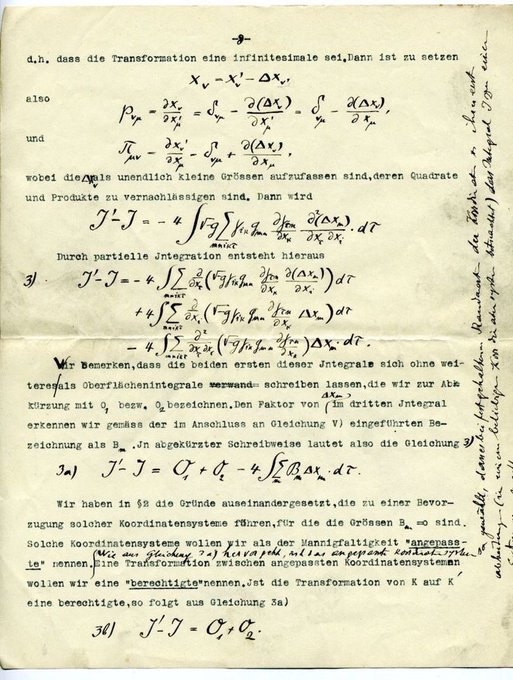 -9-
d.h. dass die Transformation eine infinitesimale sei.Dann ist zu setzen
x_ν = x_ν' - Δx_ν,
also
p_νμ = ∂x_ν/∂x_μ' = δ_νμ - ∂(Δx_ν)/∂x_μ' = δ_νμ - ∂(Δx_ν)/∂x_μ,
und
π_μν = ∂x_ν'/∂x_μ = δ_νμ + ∂(Δx_ν)/∂x_μ,
wobei die Δx_ν als unendlich kleine Grössen aufzufassen sind,deren Quadrate
und Produkte zu vernachlässigen sind. Dann wird
J'-J = - 4 ∫ √-g Σ γ_ik g_mn ∂γ_τn/∂x_k ∂²(Δx_m)/∂x_τ ∂x_i · dτ
Durch partielle Jntegration entsteht hieraus
3) J'-J = - 4. ∫ Σ ∂/∂x_τ (√-g γ_ik g_mn ∂γ_τn/∂x_k ∂(Δx_m)/∂x_i) dτ
+ 4 ∫ Σ ∂/∂x_i (√-g γ_ik g_mn ∂γ_τn/∂x_k Δx_m) dτ
- 4 ∫ Σ ∂²/∂x_τ∂x_i (√-g γ_ik g_mn ∂γ_τn/∂x_k) Δx_m · dτ .
Wir Bemerken,dass die beiden ersten dieser Jntegrale sich ohne wei-
teres als Oberflächenintegrale verwand schreiben lassen,die wir zur Ab-
kürzung mit O₁ bezw. O₂ bezeichnen.Den Faktor von Δx_m (im dritten Jntegral
erkennen wir gemäss der im Anschluss an Gleichung V) eingeführten Be-
zeichnung als B_m .Jn abgekürzter Schreibweise lautet also die Gleichung 3)
3a) J'-J = O₁ + O₂ - 4 ∫ Σ B_m Δx_m · dτ.
Wir haben in §2 die Gründe auseinandergesetzt,die zu einer Bevor-
zugung solcher Koordinatensysteme führen,für die die Grössen B_m =o sind.
Solche Koordinatensysteme wollen wir als der Mannigfaltigkeit "angepass-
te" nennen. (Wie aus Gleichung 3a) hervorgeht, ist das angepasste Koordinatensystem
Eine Transformation zwischen angepassten Koordinatensystemen
wollen wir eine "berechtigte"nennen.Jst die Transformation von K auf K'
eine berechtigte,so folgt aus Gleichung 3a)
3b) J'-J = O₁ + O₂ .
so gewählt, dass bei festgehaltenen Randwerten der Koordinaten
das Integral J